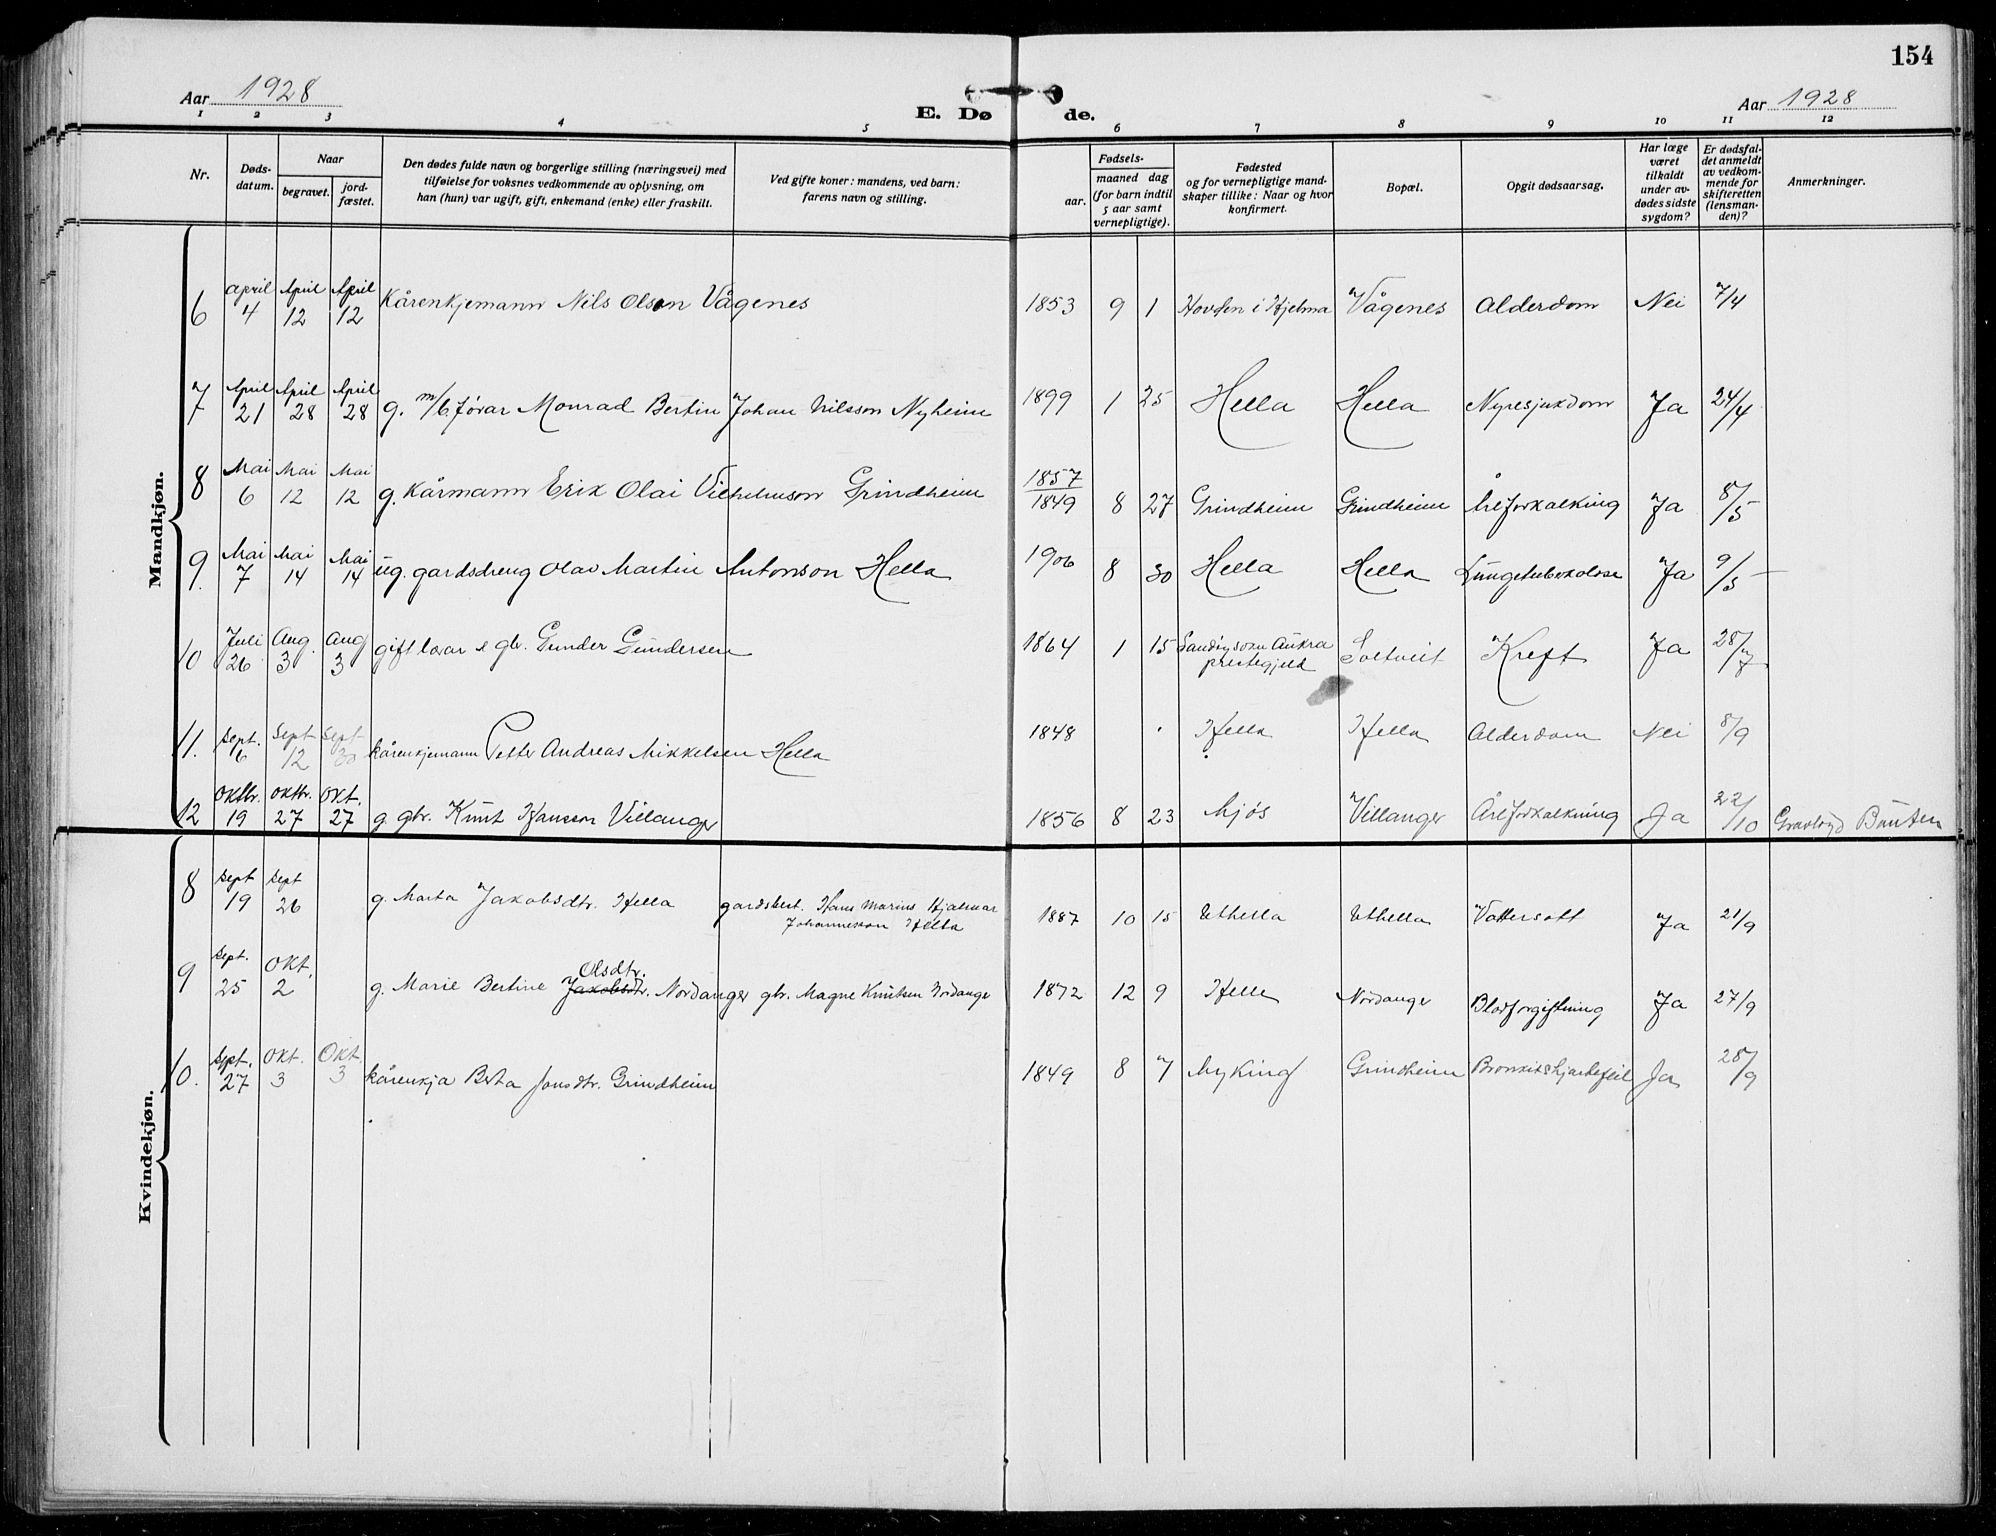 154
Aar 1928
E. Døde.
Aar 1928
1 2 3 4 5 6 7 8 9 10 11 12
Nr.
Døds-
datum.
Naar
begravet.
jord-
fæstet.
Den dødes fulde navn og borgerlige stilling (næringsvei) med
tilføielse for voksnes vedkommende av oplysning, om
han (hun) var ugift, gift, enkemand (enke) eller fraskilt.
Ved gifte koner: mandens, ved barn:
farens navn og stilling.
Fødsels-
aar.
maaned dag
(for barn indtil
5 aar samt
vernepligtige).
Fødested
og for vernepligtige mand-
skaper tillike: Naar og hvor
konfirmert.
Bopæl.
Opgit dødsaarsag.
Har læge
været
tilkaldt
under av-
dødes sidste
sygdom?
Er dødsfal-
det anmeldt
av vedkom-
mende for
skifteretten
(lensman-
den)?
Anmerkninger.
Mandkjøn.
6 April 4 April 12 April 12 Kårenkjemann Nils Olson Vågenes 1853 9 1 Hovden i Hjelma Vågenes Alderdom Nei 7/4
7 April 21 April 28 April 28 g. m/b.førar Monrad Bertin Johan Nilsson Nyheim 1899 1 25 Hella Hella Nyresjukdom Ja 24/4
8 Mai 6 Mai 12 Mai 12 g. Kårmann Erik Olai Vilhelmson Grindheim 1857 1849 8 27 Grindheim Grindheim Åreforkalking Ja 8/5
9. Mai 7 Mai 14 Mai 14 ug. gardsdreng Olav Martin Antonson Hella 1906 8 30 Hella Hella Lungetuberkolose Ja 9/5
10 Juli 26 Aug. 3 Aug 3 gift lærar & gbr. Gunder Gundersen 1864 1 15 Sandøy sokn Aukra
prestegjeld Soltveit Kreft Ja 28/7
11. Sept. 6 Sept 12 Sept 30 kårenkjemann Petter Andreas Mikkelsen Hella 1848 Hella Hella Alderdom Nei 8/9
12 Oktbr. 19 Oktbr. 27 Okt. 27 g. gbr. Knut Hansson Villanger 1856 8 23 Mjøs Villanger Åreforkalkning Ja 22/10
Kvindekjøn.
8 Sept 19 Sept 26 g. Marta Jakobsdtr. Hella gardsbest. Hans Marius Hjalmar
Johannesson Hella 1887 10 15 Uthella Uthella Vattersott Ja 21/9
9 Sept. 25 Okt. 2 g. Marie Bertine Jakobsdtr. Olsdtr. Nordanger gbr. Magne Knutsen Nordanger 1872 12 9 Helle Nordanger Blodforgiftning Ja 27/9
10. Sept. 27 Okt. 3 Okt. 3 kårenkja Berta Jonsdtr. Grindheim 1849 8 7 Myking Grindheim Bronkit hjartefeil Ja 28/9